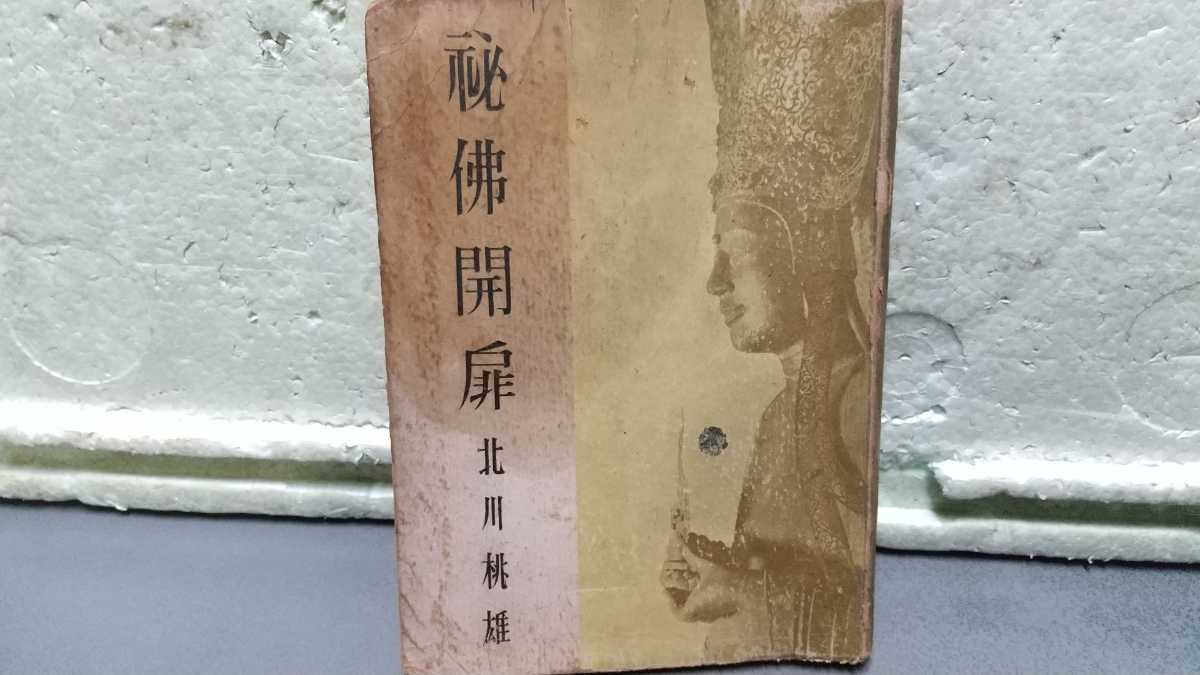 祕佛開扉
北川桃雄